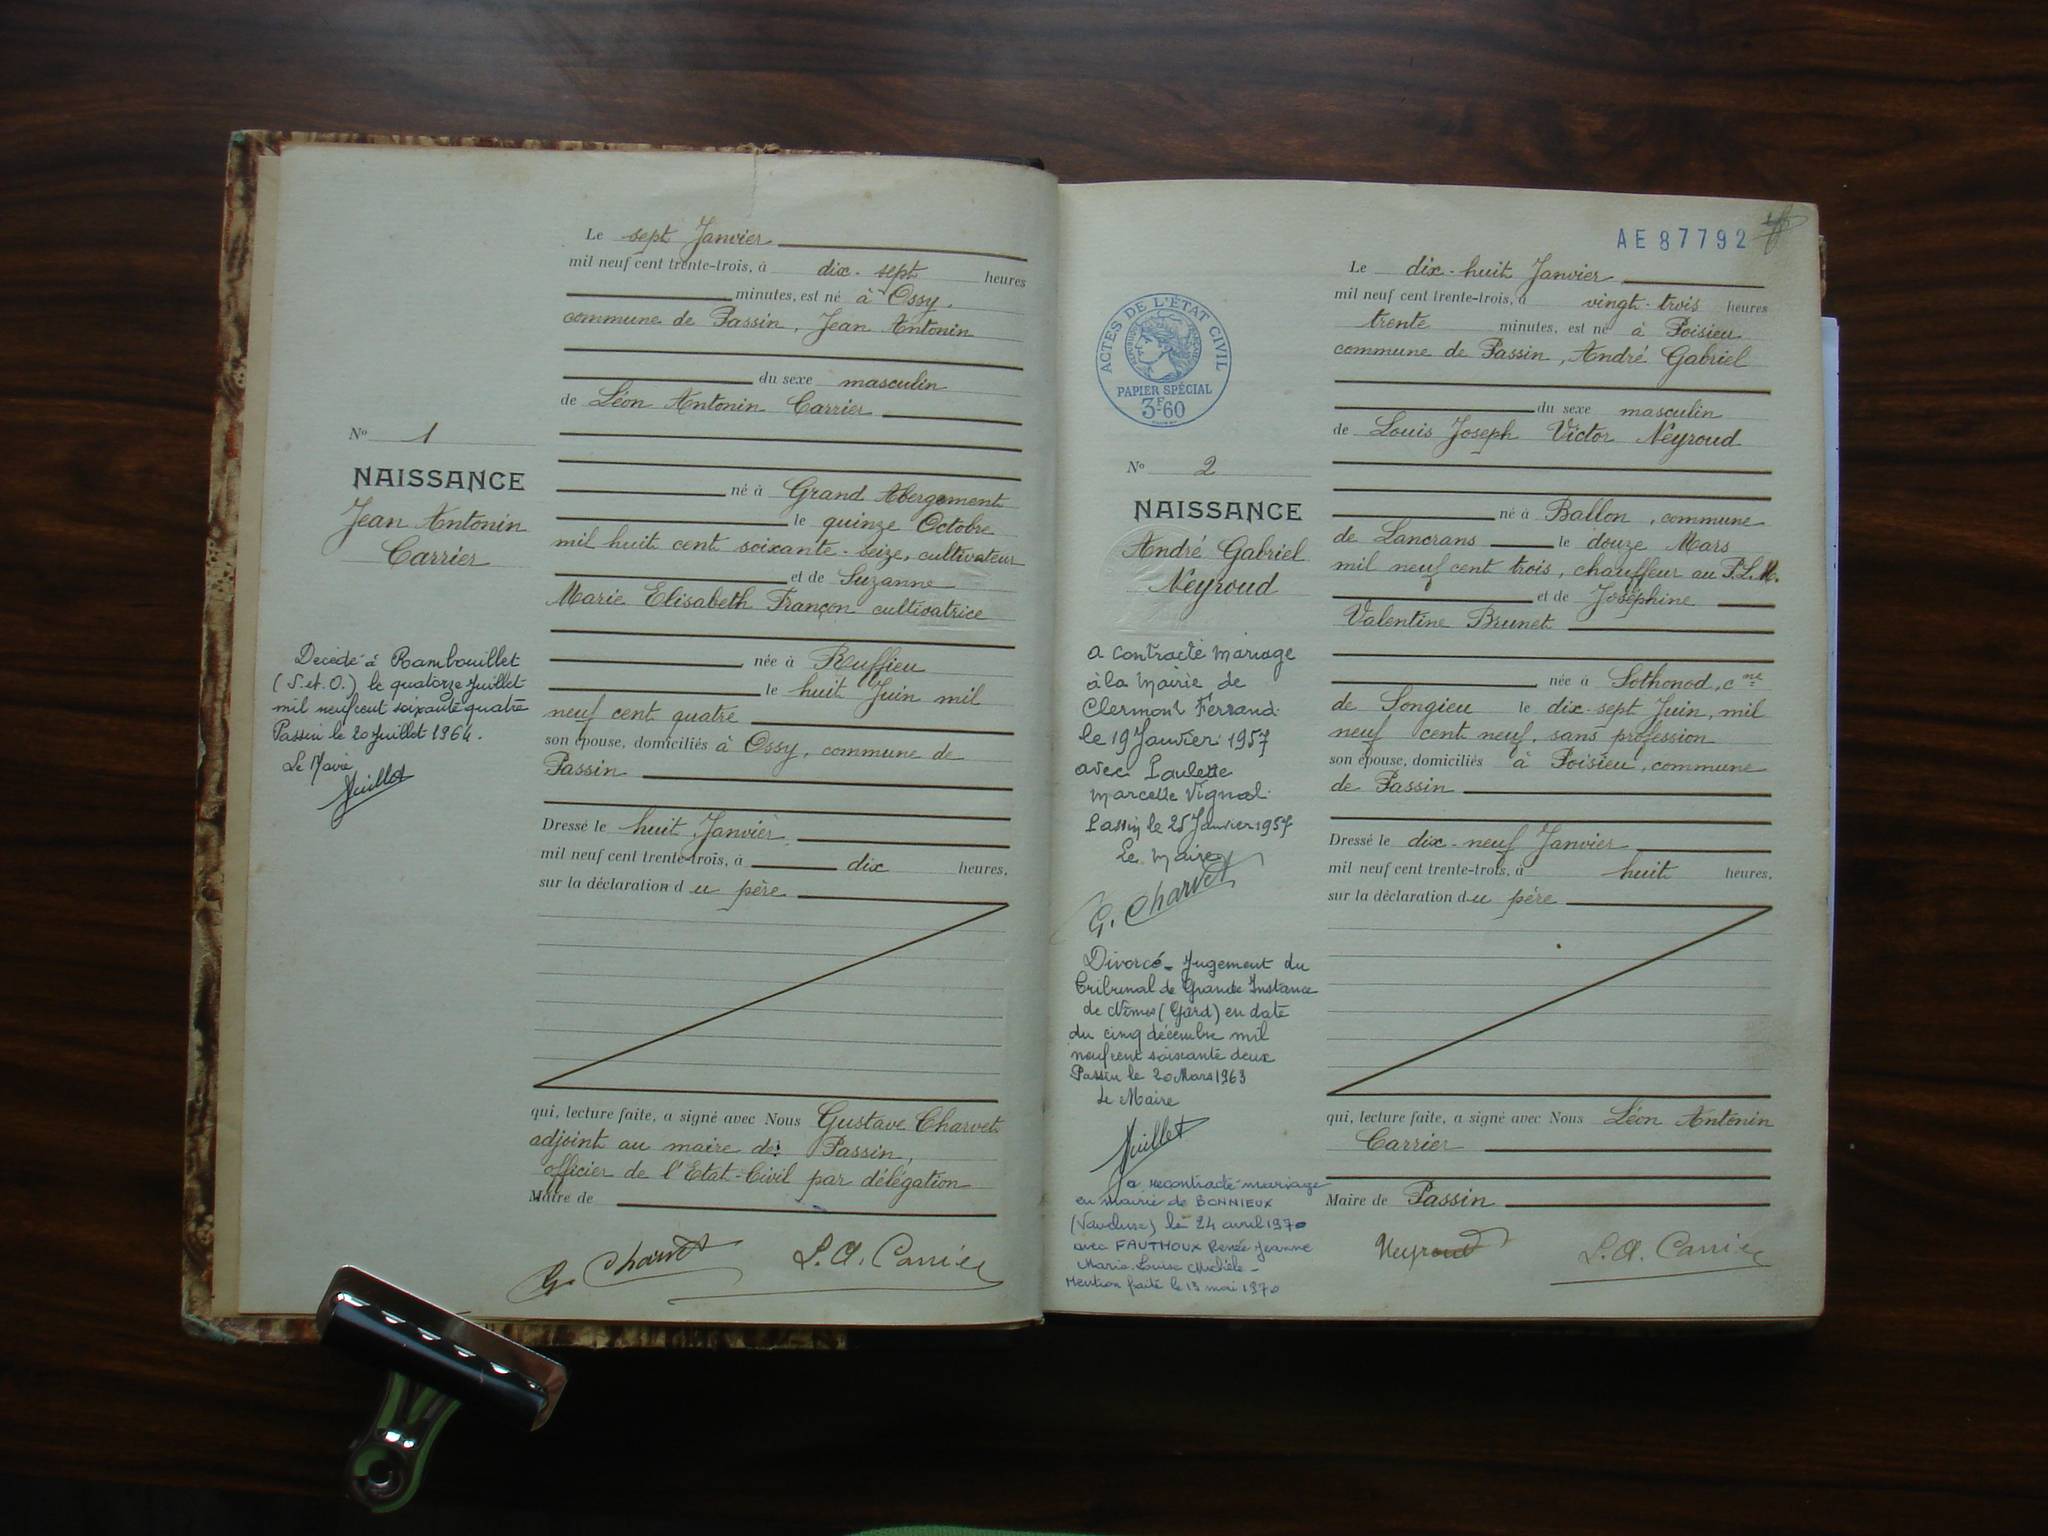 Le sept Janvier
mil neuf cent trente-trois, à dix-sept heures
minutes, est né à Ossy,
commune de Passin, Jean Antonin
du sexe masculin
de Léon Antonin Carrier
né à Grand Abergement
le quinze Octobre
mil huit cent soixante-seize, cultivateur
et de Suzanne
Marie Elisabeth Françon cultivatrice
née à Ruffieu
le huit Juin mil
neuf cent quatre
son épouse, domiciliés à Ossy, commune de
Passin
Dressé le huit Janvier
mil neuf cent trente-trois, à dix heures,
sur la déclaration du père
qui, lecture faite, a signé avec Nous Gustave Charvet
adjoint au maire de Passin,
officier de l'Etat-Civil par délégation
Maire de
G. Charvet L. A. Carrier
No 1
NAISSANCE
Jean Antonin
Carrier
Décédé à Rambouillet
(S. et. O.) le quatorze Juillet
mil neuf cent soixante quatre
Passin le 20 Juillet 1964.
Le Maire
Juillet
AE 87792
Le dix-huit Janvier
mil neuf cent trente-trois, à vingt-trois heures
trente minutes, est né à Poisieu
commune de Passin, André Gabriel
du sexe masculin
de Louis Joseph Victor Neyroud
né à Ballon, commune
de Lancrans le douze Mars
mil neuf cent trois, chauffeur au P.L.M.
et de Joséphine
Valentine Brunet
née à Sothonod, cne
de Songieu le dix-sept Juin, mil
neuf cent neuf, sans profession
son épouse, domiciliés à Poisieu, commune
de Passin
Dressé le dix-neuf Janvier
mil neuf cent trente-trois, à huit heures,
sur la déclaration du père
qui, lecture faite, a signé avec Nous Léon Antonin
Carrier
Maire de Passin
Neyroud L. A. Carrier
ACTES DE L'ÉTAT CIVIL
PAPIER SPÉCIAL
3F60
No 2
NAISSANCE
André Gabriel
Neyroud
a contracté mariage
à la Mairie de
Clermont Ferrand
le 19 Janvier 1957
avec Paulette
Marcelle Vignal
Passin le 25 Janvier 1957
Le Maire
G. Charvet
Divorcé - Jugement du
Tribunal de Grande Instance
de Nîmes (Gard) en date
du cinq décembre mil
neuf cent soixante deux
Passin le 20 Mars 1963
Le Maire
Juillet
a recontracté mariage
en mairie de BONNIEUX
(Vaucluse) le 24 avril 1970
avec FAUTHOUX Renée Jeanne
Marie-Louise Michèle -
Mention faite le 13 mai 1970